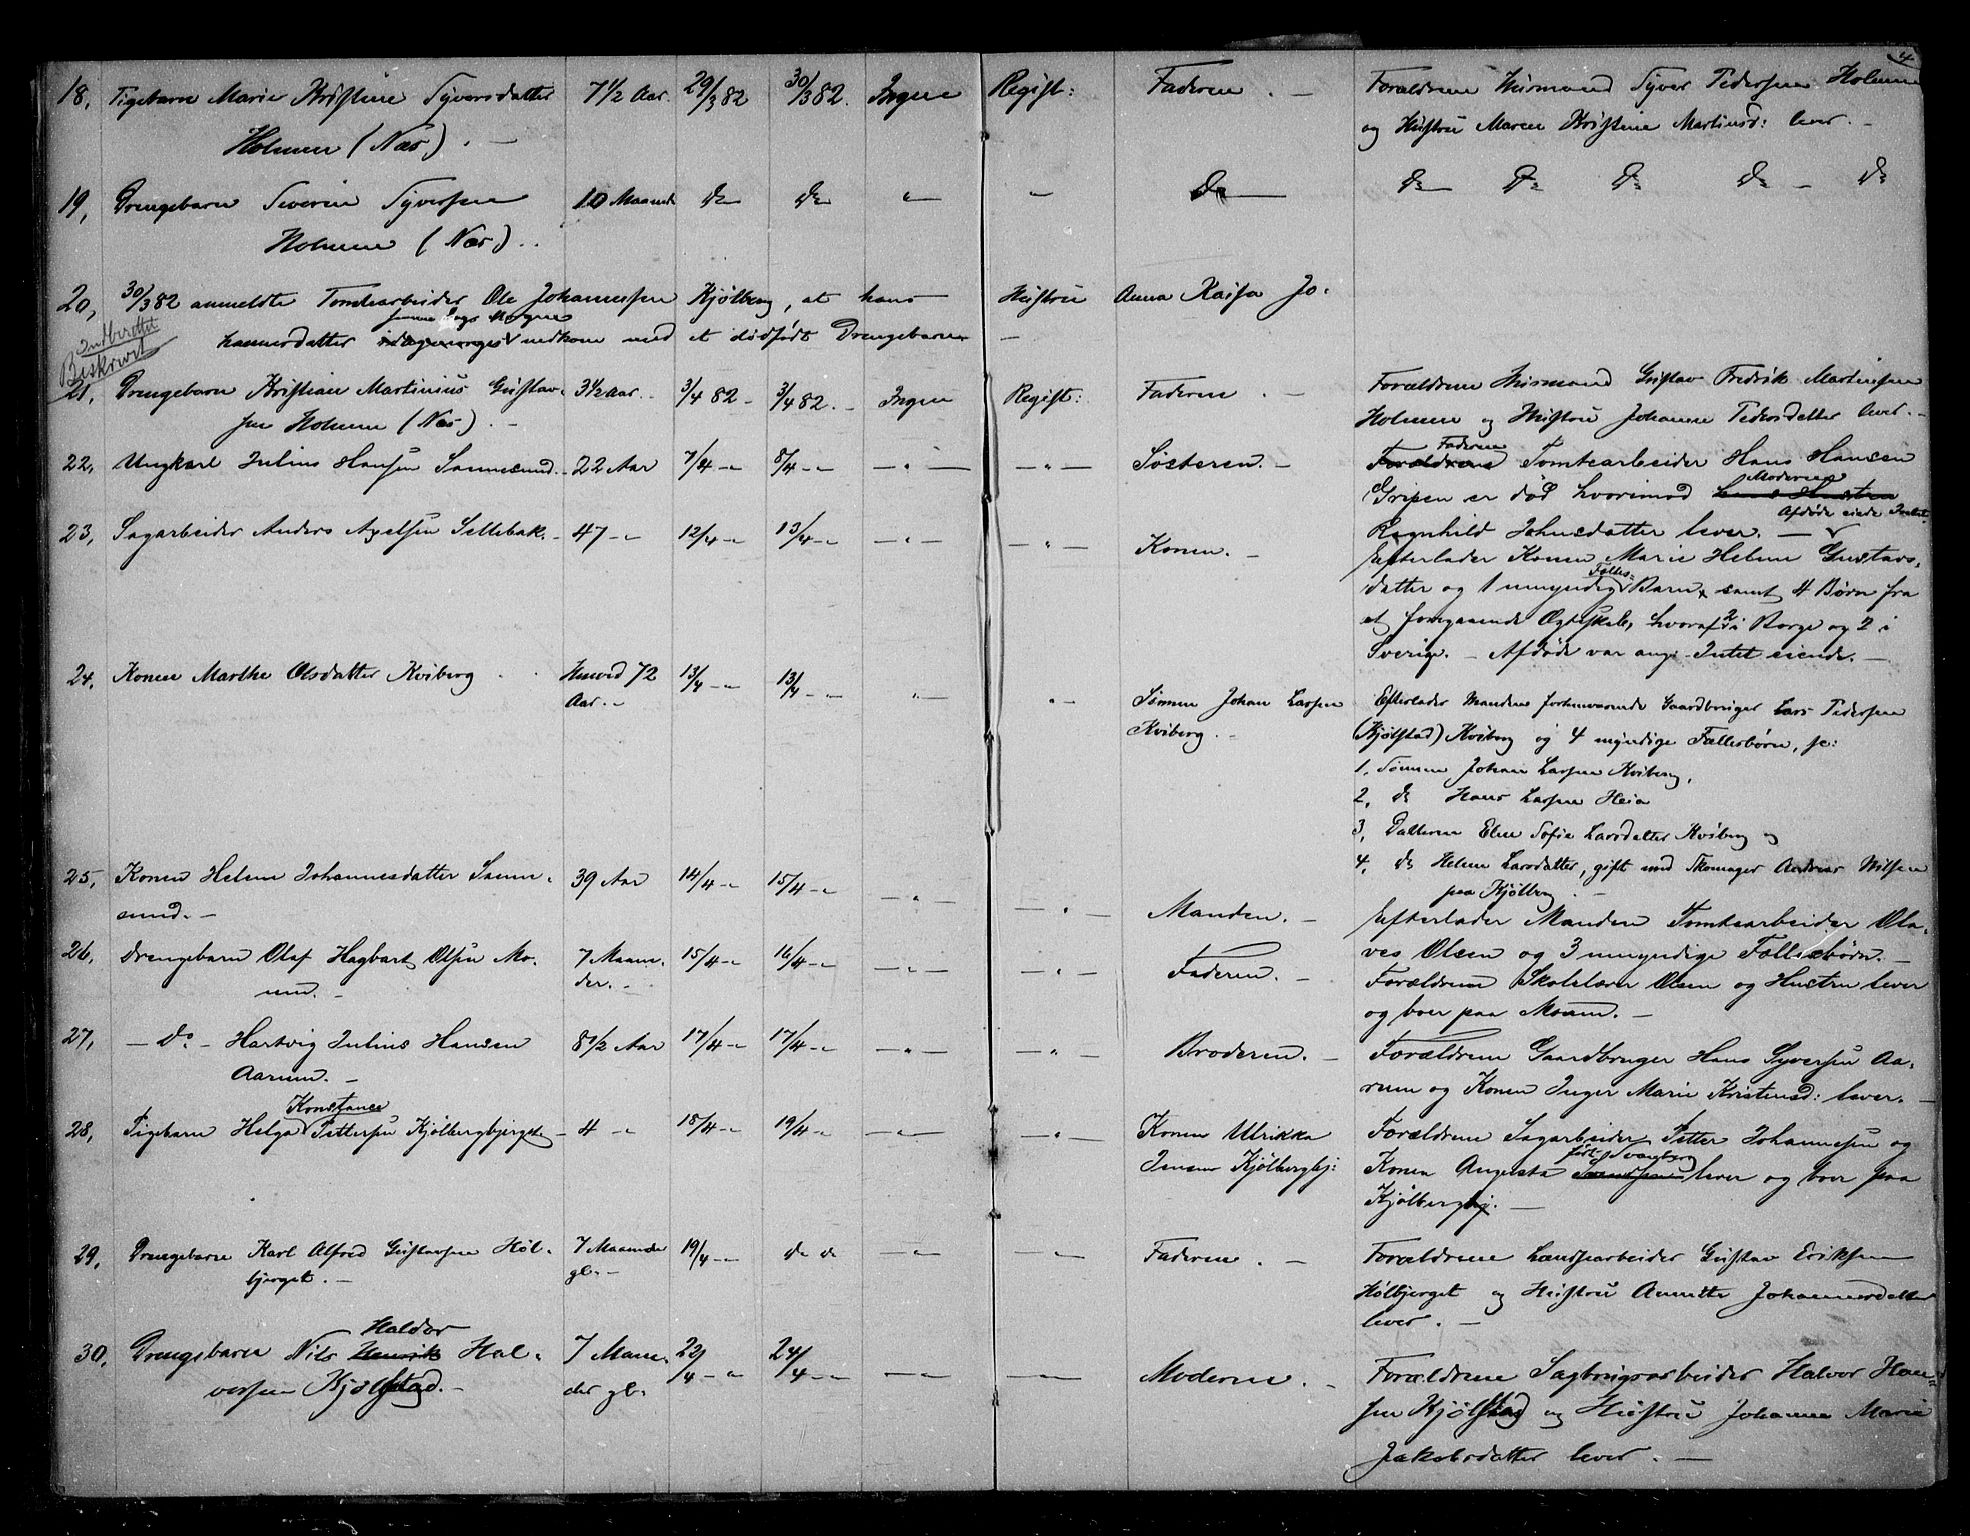 4
18, Pigebarn Marie Kristine Syversdatter 7 1/2 Aar. 29/3 82 30/3 82. Ingen Regist: Faderen. — Forældrene Husmand Syver Pedersen Holmen
Holmen (Næs). — og Hustru Maren Kristine Martinsd: lever. —
19, Drengebarn Severin Syversen 10 Maaned do do " " do do do do do — do
Holmen (Næs). .
20, 30/3 82 anmeldte Tomtearbeider Ole Johannesen Kjølberg, at hans Hustru Anna Kaisa Jo-
samme Dags Morgen
hannesdatter nedkom med et dødfødt Drengebarn —
Indberettet
Beskrevet
21, Drengebarn Kristian Martinius Gustav- 3 1/2 Aar. 3/4 82 - 3/4 82. - Ingen Regist: Faderen. — Forældrene Husmand Gustav Fredrik Martinsen
sen Holmen (Næs). — Holmen og Hustru Johanne Pedersdatter lever. —
22, Ungkarl Julius Hansen Sannesund. - 22 Aar 7/4 - " 8/4 - " — " — — " — Søsteren. — Forældrene Faderen Tomtearbeider Hans Hansen
Gripen er død hvorimod hans Hustru Moderen
Afdøde eiede Intet.
23, Sagarbeider Anders Axelsen Sellebak. - 47 - " 12/4 - " 13/4 - " — " — — " — Konen. — Ragnhild Johnsdatter lever. —
Efterlader Konen Marie Helene Gustavs-
datter og 1 umyndig Fælles- Barn, samt 4 Børn fra
et foregaaende Ægteskab, hvoraf 2 i Borge og 2 i
Sverige. — Afdøde var ang. Intet eiende. —
24, Konen Marthe Olsdatter Kviberg . Henved 72 13/4 - " 13/4 - " " — " — Sønnen Johan Larsen Efterlader Manden forhenværende Gaardbruger Lars Pedersen
Aar. - Kviberg. - (Kjølstad) Kviberg og 4 myndige Fællesbørn, sc:
1, Sønnen Johan Larsen Kviberg,
2, do Hans Larsen Heia
3, Datteren Elen Sofie Larsdatter Kviberg og
4, do Helene Larsdatter, gift med Skomager Andreas Nilsen
paa Kjølberg. —
25, Konen Helene Johannesdatter Sanne- 39 Aar 14/4 - " 15/4 - " — " — — " — Manden. — Efterlader Manden Tomtearbeider Ola-
sund. — ves Olsen og 3 umyndige Fællesbørn. —
26, Drengebarn Olaf Hagbart Olsen Mo- 7 Maane- 15/4 - " 16/4 - " — " — — " — Faderen. — Forældrene Skolelærer Olsen og Hustru lever
um. — der. - og boer paa Moum. —
27, — do. - Hartvig Julius Hansen 8 1/2 Aar 17/4 - " 17/4 - " — " — — " — Broderen. — Forældrene Gaardbruger Hans Syversen Aa-
Aarum. — rum og Konen Inger Marie Kristensd: lever. —
28, Pigebarn Helga Konstance Pettersen Kjølbergbjerget - 4 - " 18/4 - " 19/4 - " — " — — " — Konen Ulrikka Forældrene Sagarbeider Petter Johannesen og
Jensen Kjølbergbj: Konen Augusta født Svanberg lever og boer paa
Kjølbergbj. —
29, Drengebarn Karl Alfred Gustavsen Høl- 7 Maaneder 19/4 - " do do — " — — " — Faderen. — Forældrene Landsarbeider Gustav Eriksen
bjerget. — gl. - Hølbjerget og Hustru Annette Johannesdatter
lever. —
30, Drengebarn Nils Henrik Haldor Hal- 7 Maane- 23/4 - " 24/4 - " — " — — " — Moderen. — Forældrene Sagbrugsarbeider Halvor Han-
vorsen Kjølstad. - der gl. sen Kjølstad og Hustru Johanne Marie
Jakobsdatter lever. —